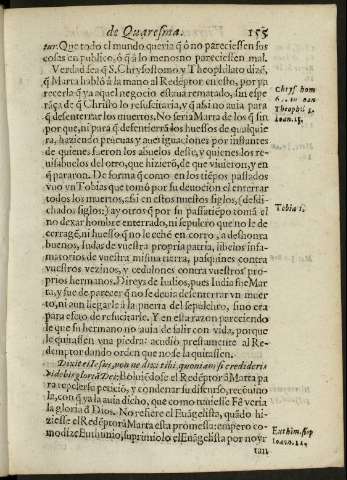 de Quaresma. 155
tur. Que todo el mundo queria q̃ ò no pareciessen sus
cosas en publico, ó q̃ à lo menos no pareciessen mal.
Verdad sea q̃ S. Chrysostomo y Theophilato dizẽ,
q̃ Marta hablò à la mano al Redẽptor en esto, por pa
recerla q̃ ya aquel negocio estaua rematado, sin espe
rãça de q̃ Christo lo resuscitaria, y q̃ ahi no auia para
q̃ desenterrar los muertos. No seria Marta de los q̃ sin
por que, ni para q̃ desentierrã los huessos de qualquie
ra, haziendo precuas y auesiguaciones por instantes
de quienes fueron los abuelos deste, y quienes los re
uisabuelos del otro, que hizierõ, de que viuieron, y en
q̃ pararon. De forma q̃ como en los tiẽpos passados
vuo vn Tobias que tomò por su deuocion el enterrar
todos los muertos, assi en estos nuestos siglos, (desdi-
chados siglos) ay otros q̃ por su passatiẽpo tomã el
no dexar hombre enterrado, ni sepulcro que no le de
cerragẽ, ni huesso q̃ no le echẽ en corro, a deshonra
buenos, Iudas de vuestra propria patria, libelos infa-
matorios de vuestra misma tierra, pasquines contra
vuestros vezinos, y cedulones contra vuestros pro-
prios hermanos. Direys de Iudios, pues Iudia fue Mar
ta, y fue de parecer q̃ no se deuia desenterrar vn muer
to, ni aun llegarle à la puerta del sepulchro, sino era
para efeto de resucitarle. Y en esta razon pareciendo
le que su hermano no auia de salir con vida, porque
le quitassen vna piedra: acudio prestamente al Re-
demptor dando orden que no se la quitassen.
Dixit ei Iesus, nonne dixi tibi, quoniam si credideris
videbis gloriã Dei: Boluiẽdose el Redẽptor à Marta pa
ra repelerla preuiò, y condenar su discurso, recõuino
la, con q̃ ya la auia dicho, que como tuuiesse Fè veria
la gloria d̃ Dios. No refiere el Euãgelista, quãdo hi-
ziesse el Redẽptor à Marta esta promesa: empero co-
mo dize Euthimio, suprimiolo el Euãgelista por no yr
tan
Chrys. hom
Theophil.
Ioan. 11.
Tobia 1.
Euthim. sup
Ioann. 11.